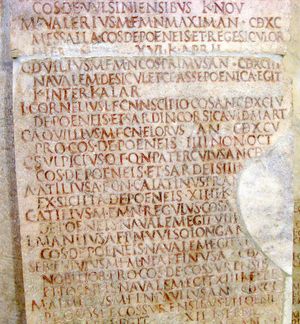 COS DE VVLSINIENSIBVS K NOV
M VALERIVS M F M N MAXIM AN CDXC
MESSALLA COS DE POENEIS ET REGE SICVLOR
XVI K APRIL
C DVILIVS M F M N COS PRIMVS AN CDXCI
NAVALEM DE SICVL ET CLASSE POENICA EGIT
K INTERKALAR
L CORNELIVS L F CN N SCIPIO COS AN CDXCIV
DE POENEIS ET SARDIN CORSICA V ID MART
C AQVILLIVS M F C N FLORVS AN CDXCV
PRO COS DE POENEIS IIII NON OCT
C SVLPICIVS Q F Q N PATERCVLVS AN CDXCV
COS DE POENEIS ET SARDEIS III N
A ATILIVS A F C N CALATINVS PR
EX SICILIA DE POENEIS XIIII K
C ATILIVS M F M N REGVLVS COS
DE POENEIS NAVALEM EGIT VIII
L MANLIVS A F P N VVLSO LONG AN
COS DE POENEIS NAVALEM EGIT
SER M F M N PAETINVS AN CD
NOBILIOR PRO COS DE COSSVRENSIBVS
POENEIS NAVALEM EGIT XIII K FE
M AIMILIVS M F L N PAVLLVS AN CDX
PRO COS DE COSSVRENSIBVS ET POENEIS
EGIT XII K FEBR